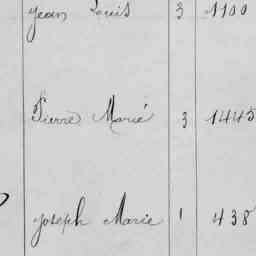 Jean Louis 3 1100
Pierre Marie 3 1445
Joseph Marie 1 438